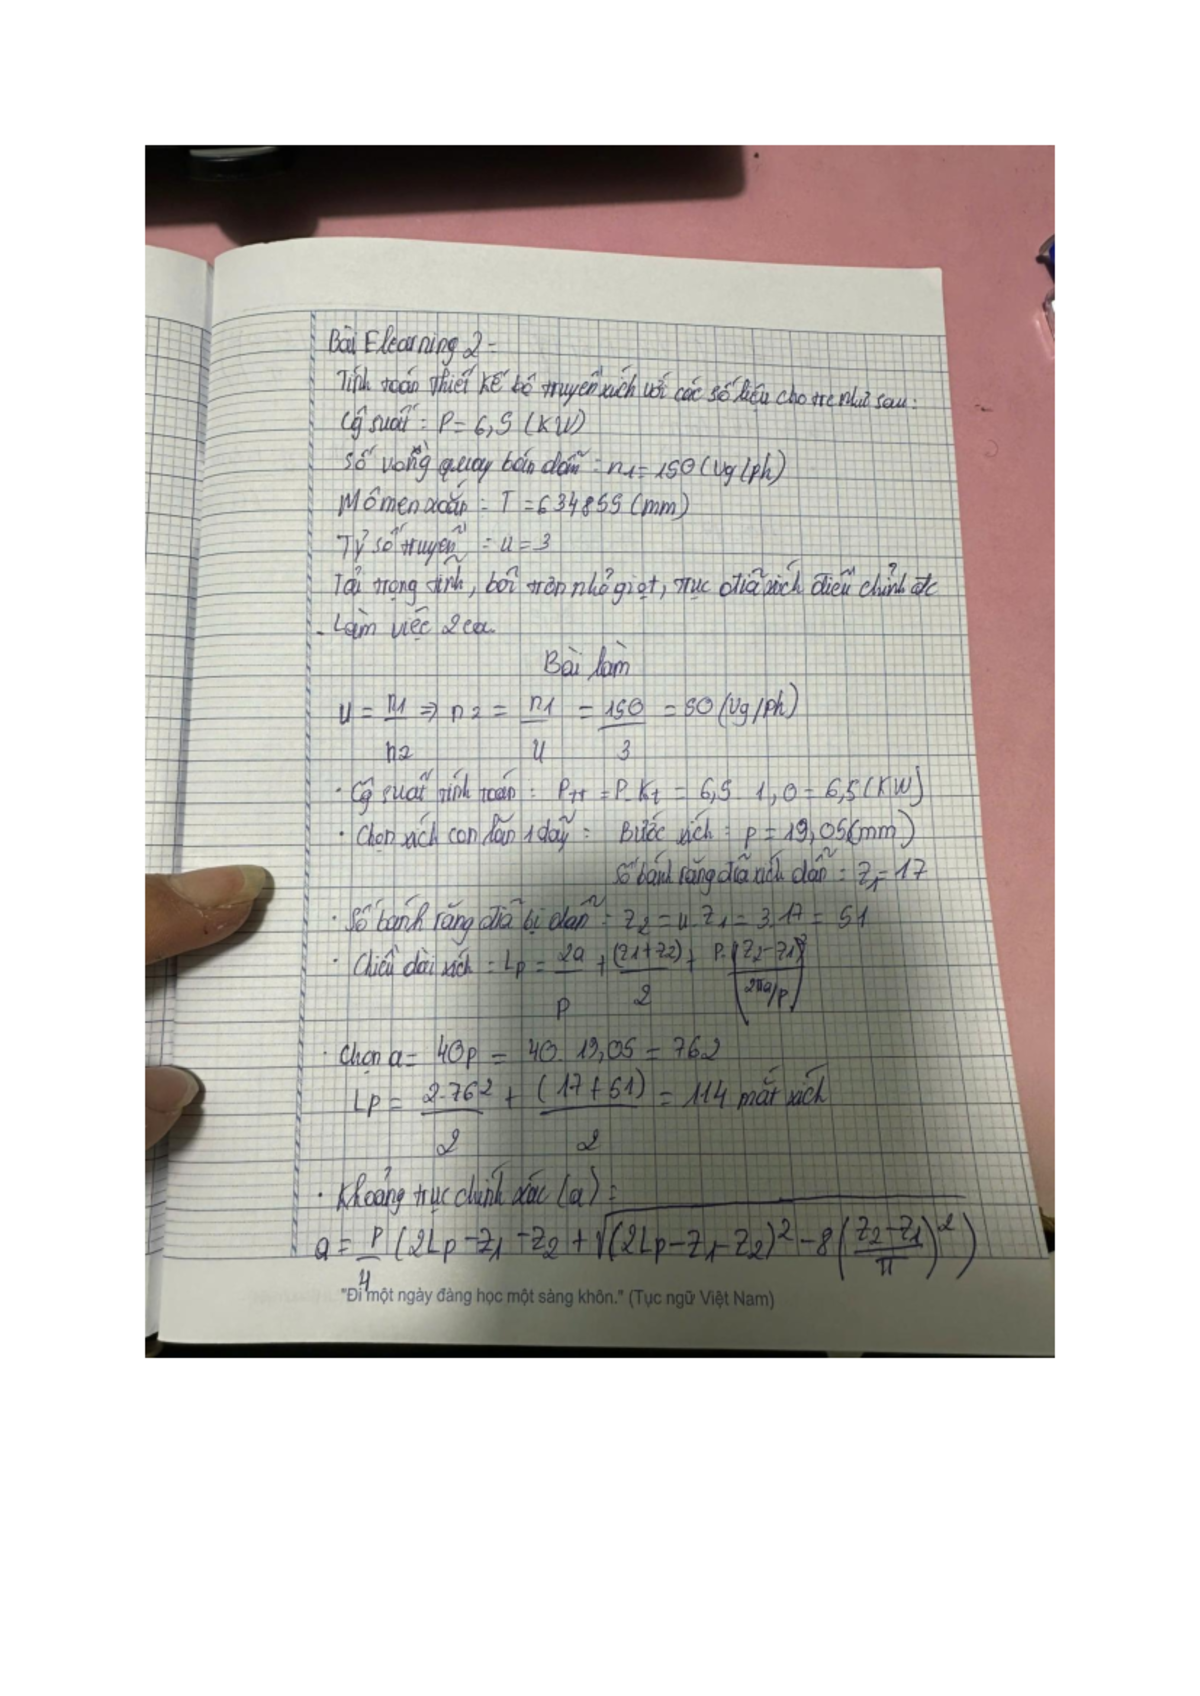 Bài Elearning 2:
Tính toán thiết kế bộ truyền xích với các số liệu cho trc như sau:
Cg suất: P = 6,5 (KW)
Số vòng quay bán dẫn: n1 = 150 (vg/ph)
Mômen xoắn: T = 634855 (mm)
Tỷ số truyền: u = 3
Tải trọng tĩnh, bôi trơn nhỏ giọt, trục đĩa xích điều chỉnh đc
- Làm việc 2 ca.
Bài làm
u = n1/n2 ⇒ n2 = n1/u = 150/3 = 50 (vg/ph)
· Cg suất tính toán: Ptt = P.Kt = 6,5 . 1,0 = 6,5 (KW)
· Chọn xích con lăn 1 dãy: Bước xích: p = 19,05 (mm)
Số bánh răng đĩa xích dẫn: Z1 = 17
· Số bánh răng đĩa bị dẫn: Z2 = u.Z1 = 3.17 = 51
· Chiều dài xích: Lp = 2a/p + (Z1+Z2)/2 + P.((Z2-Z1)²/(2πa/p))
· Chọn a = 40p = 40. 19,05 = 762
Lp = 2.762/2 + (17+51)/2 = 114 mắt xích
· Khoảng trục chính xác (a):
a = P/4 (2Lp - Z1 - Z2 + √((2Lp - Z1 - Z2)² - 8((Z2-Z1)/π)²))
"Đi một ngày đàng học một sàng khôn." (Tục ngữ Việt Nam)